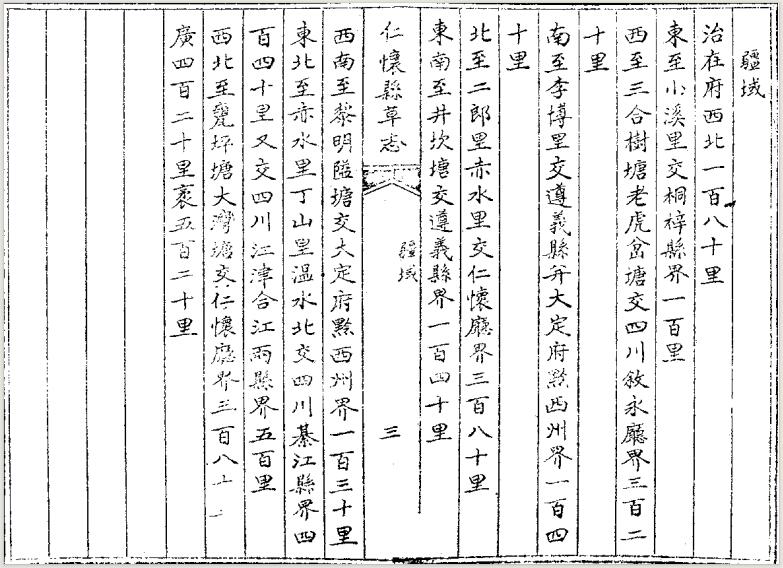 疆域
治在府西北一百八十里
東至小溪里交桐梓縣界一百里
西至三合樹塘老虎岔塘交四川敘永廳界三百二
十里
南至李博里交遵義縣并大定府黔西州界一百四
十里
北至二郎里赤水里交仁懷廳界三百八十里
東南至井坎塘交遵義縣界一百四十里
仁懷縣草志
疆域
三
西南至黎明隘塘交大定府黔西州界一百三十里
東北至赤水里丁山里溫水北交四川綦江縣界四
百四十里又交四川江津合江兩縣界五百里
西北至甕坪塘大灣塘交仁懷廳界三百八十
廣四百二十里袤五百二十里